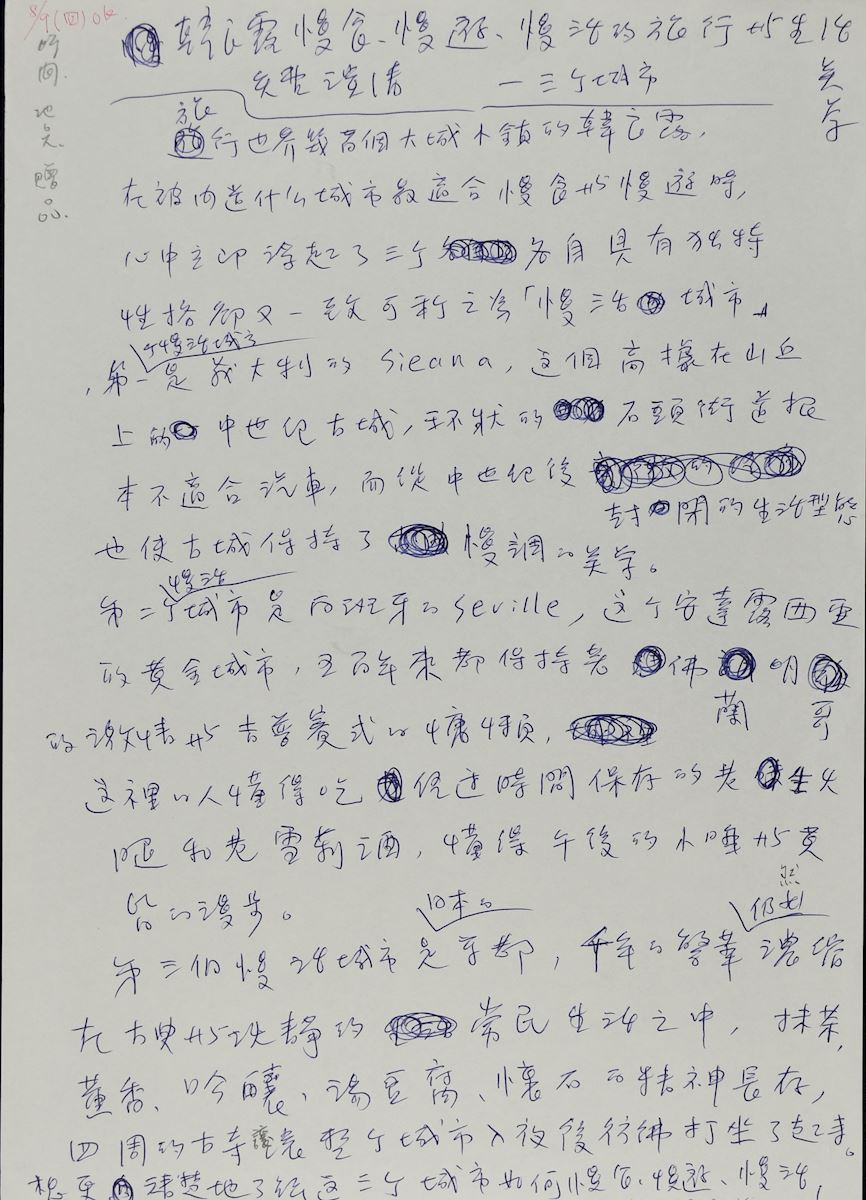 8/9(四)OK
時間、地点、贈品.
韓良露慢食、慢遊、慢活的旅行與生活美学
一三个城市
旅行世界幾百個大城小鎮的韓良露,
在被问道什么城市最適合慢食與慢遊時,
心中立即浮起了三个各自具有独特
性格卻又一致可称之為「慢活城市」
第一个慢活城市是義大利的Sieana,這個高據在山丘
上的中世纪古城,环狀的石頭街道根
本不適合汽車,而從中世纪後封閉的生活型態
也使古城保持了慢調的美学。
第二个慢活城市是西班牙的Seville,这个安達露西亚
的黄金城市,五百年來都保持著佛蘭明哥
的熱情與吉普賽式的慵懶,
這裡的人懂得吃經过時間保存的老生火
腿和老雪莉酒,懂得午後的小睡與黄
昏的漫步。
第三個慢活城市是日本的京都,千年的繁華仍然
在古典與沈靜的常民生活之中,抹茶,
薰香、吟釀、湯豆腐、懷石的精神長存,
四周的古寺讓整个城市入夜後彷彿打坐了起來。
想更清楚地了解这三个城市如何慢食、慢遊、慢活,